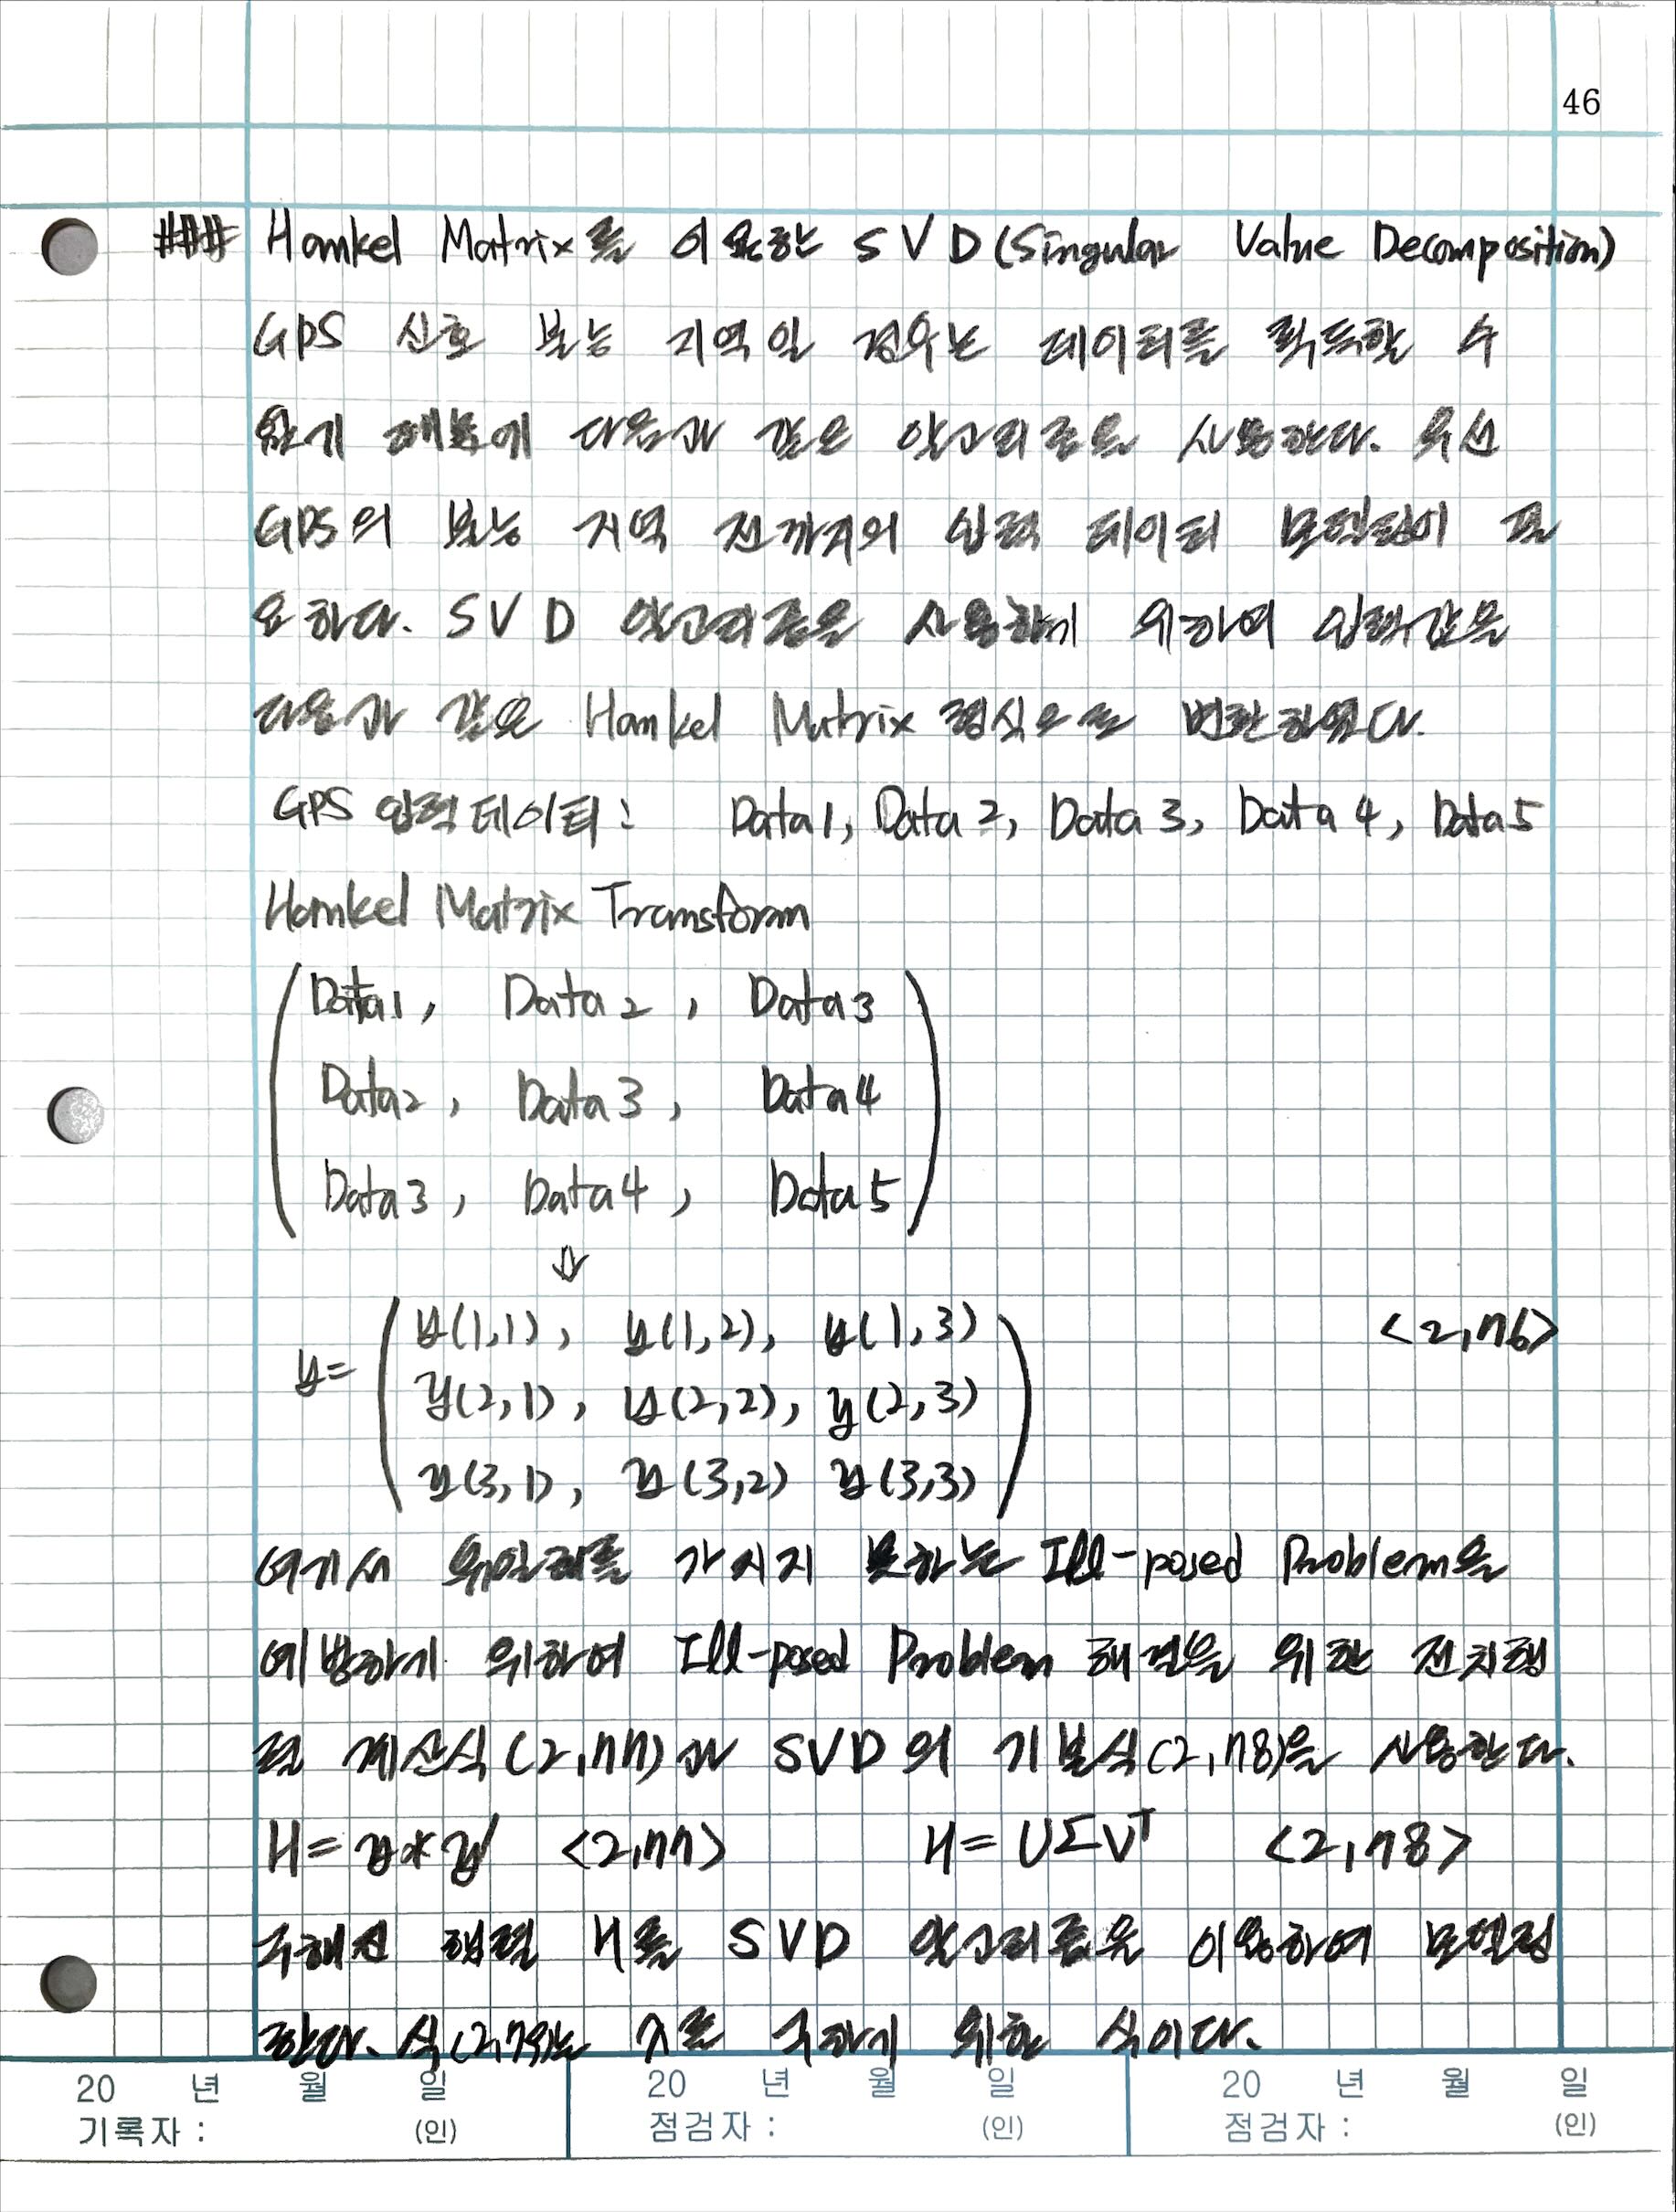 46
### Hankel Matrix를 이용한 SVD(Singular Value Decomposition)
GPS 신호 불능 지역일 경우는 데이터를 획득할 수
없기 때문에 다음과 같은 알고리즘을 사용한다. 우선
GPS의 불능 지역 전까지의 입력 데이터 모델링이 필
요하다. SVD 알고리즘을 사용하기 위하여 입력값을
다음과 같은 Hankel Matrix 형식으로 변환하였다.
GPS 입력 데이터 : Data1, Data2, Data3, Data4, Data5
Hankel Matrix Transform
Data1, Data2, Data3
Data2, Data3, Data4
Data3, Data4, Data5
⇩
y= y(1,1), y(1,2), y(1,3) <2,76>
y(2,1), y(2,2), y(2,3)
y(3,1), y(3,2) y(3,3)
여기서 유일해를 가지지 못하는 Ill-posed Problem을
예방하기 위하여 Ill-posed Problem 해결을 위한 전치행
렬 계산식(2,77)과 SVD의 기본식(2,78)을 사용한다.
H=y*y' <2,77> H=UΣVᵀ <2,78>
구해진 행렬 H를 SVD 알고리즘을 이용하여 모델링
한다. 식(2,79)는 λ를 구하기 위한 식이다.
20 년 월 일 20 년 월 일 20 년 월 일
기록자 : (인) 점검자 : (인) 점검자 : (인)